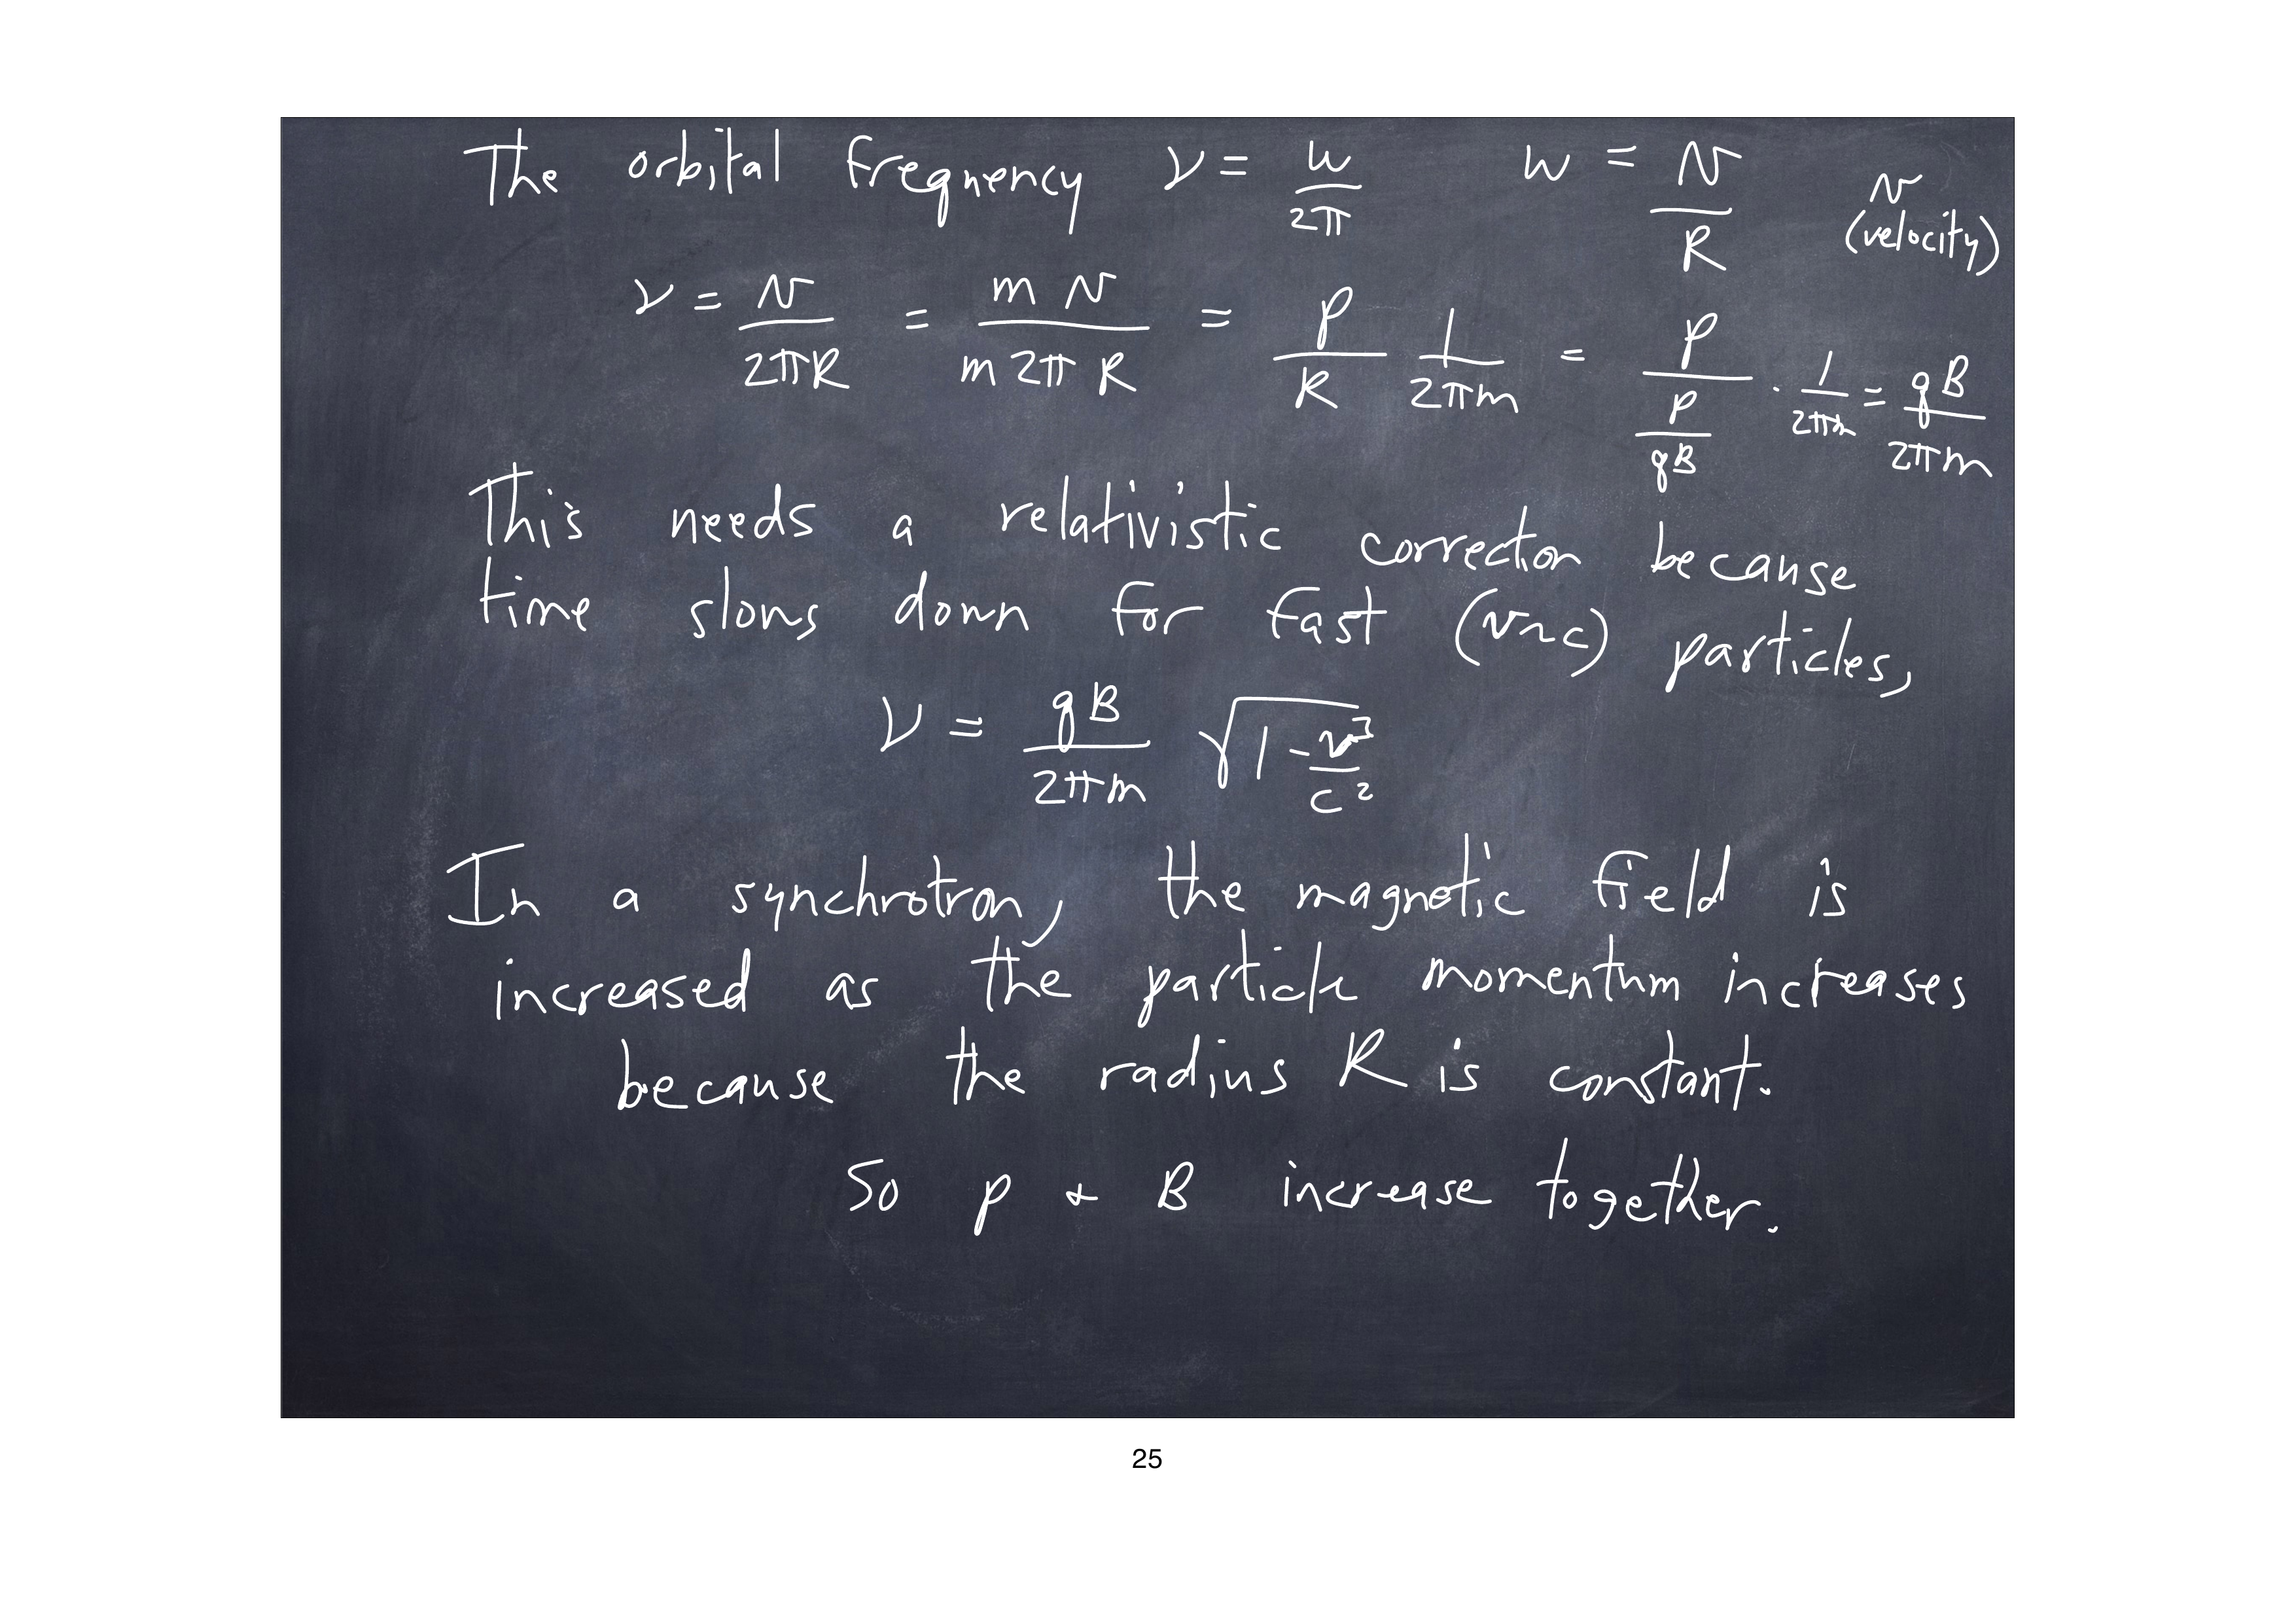 The orbital frequency ν = w/2π w = v/R v
(velocity)
ν = v/2πR = m v/m 2π R = p/R 1/2πm = p/(p/qB) · 1/2πm = qB/2πm
This needs a relativistic correction because
time slows down for fast (v~c) particles,
ν = qB/2πm √(1 - v²/c²)
In a synchrotron, the magnetic field is
increased as the particle momentum increases
because the radius R is constant.
So p & B increase together.
25